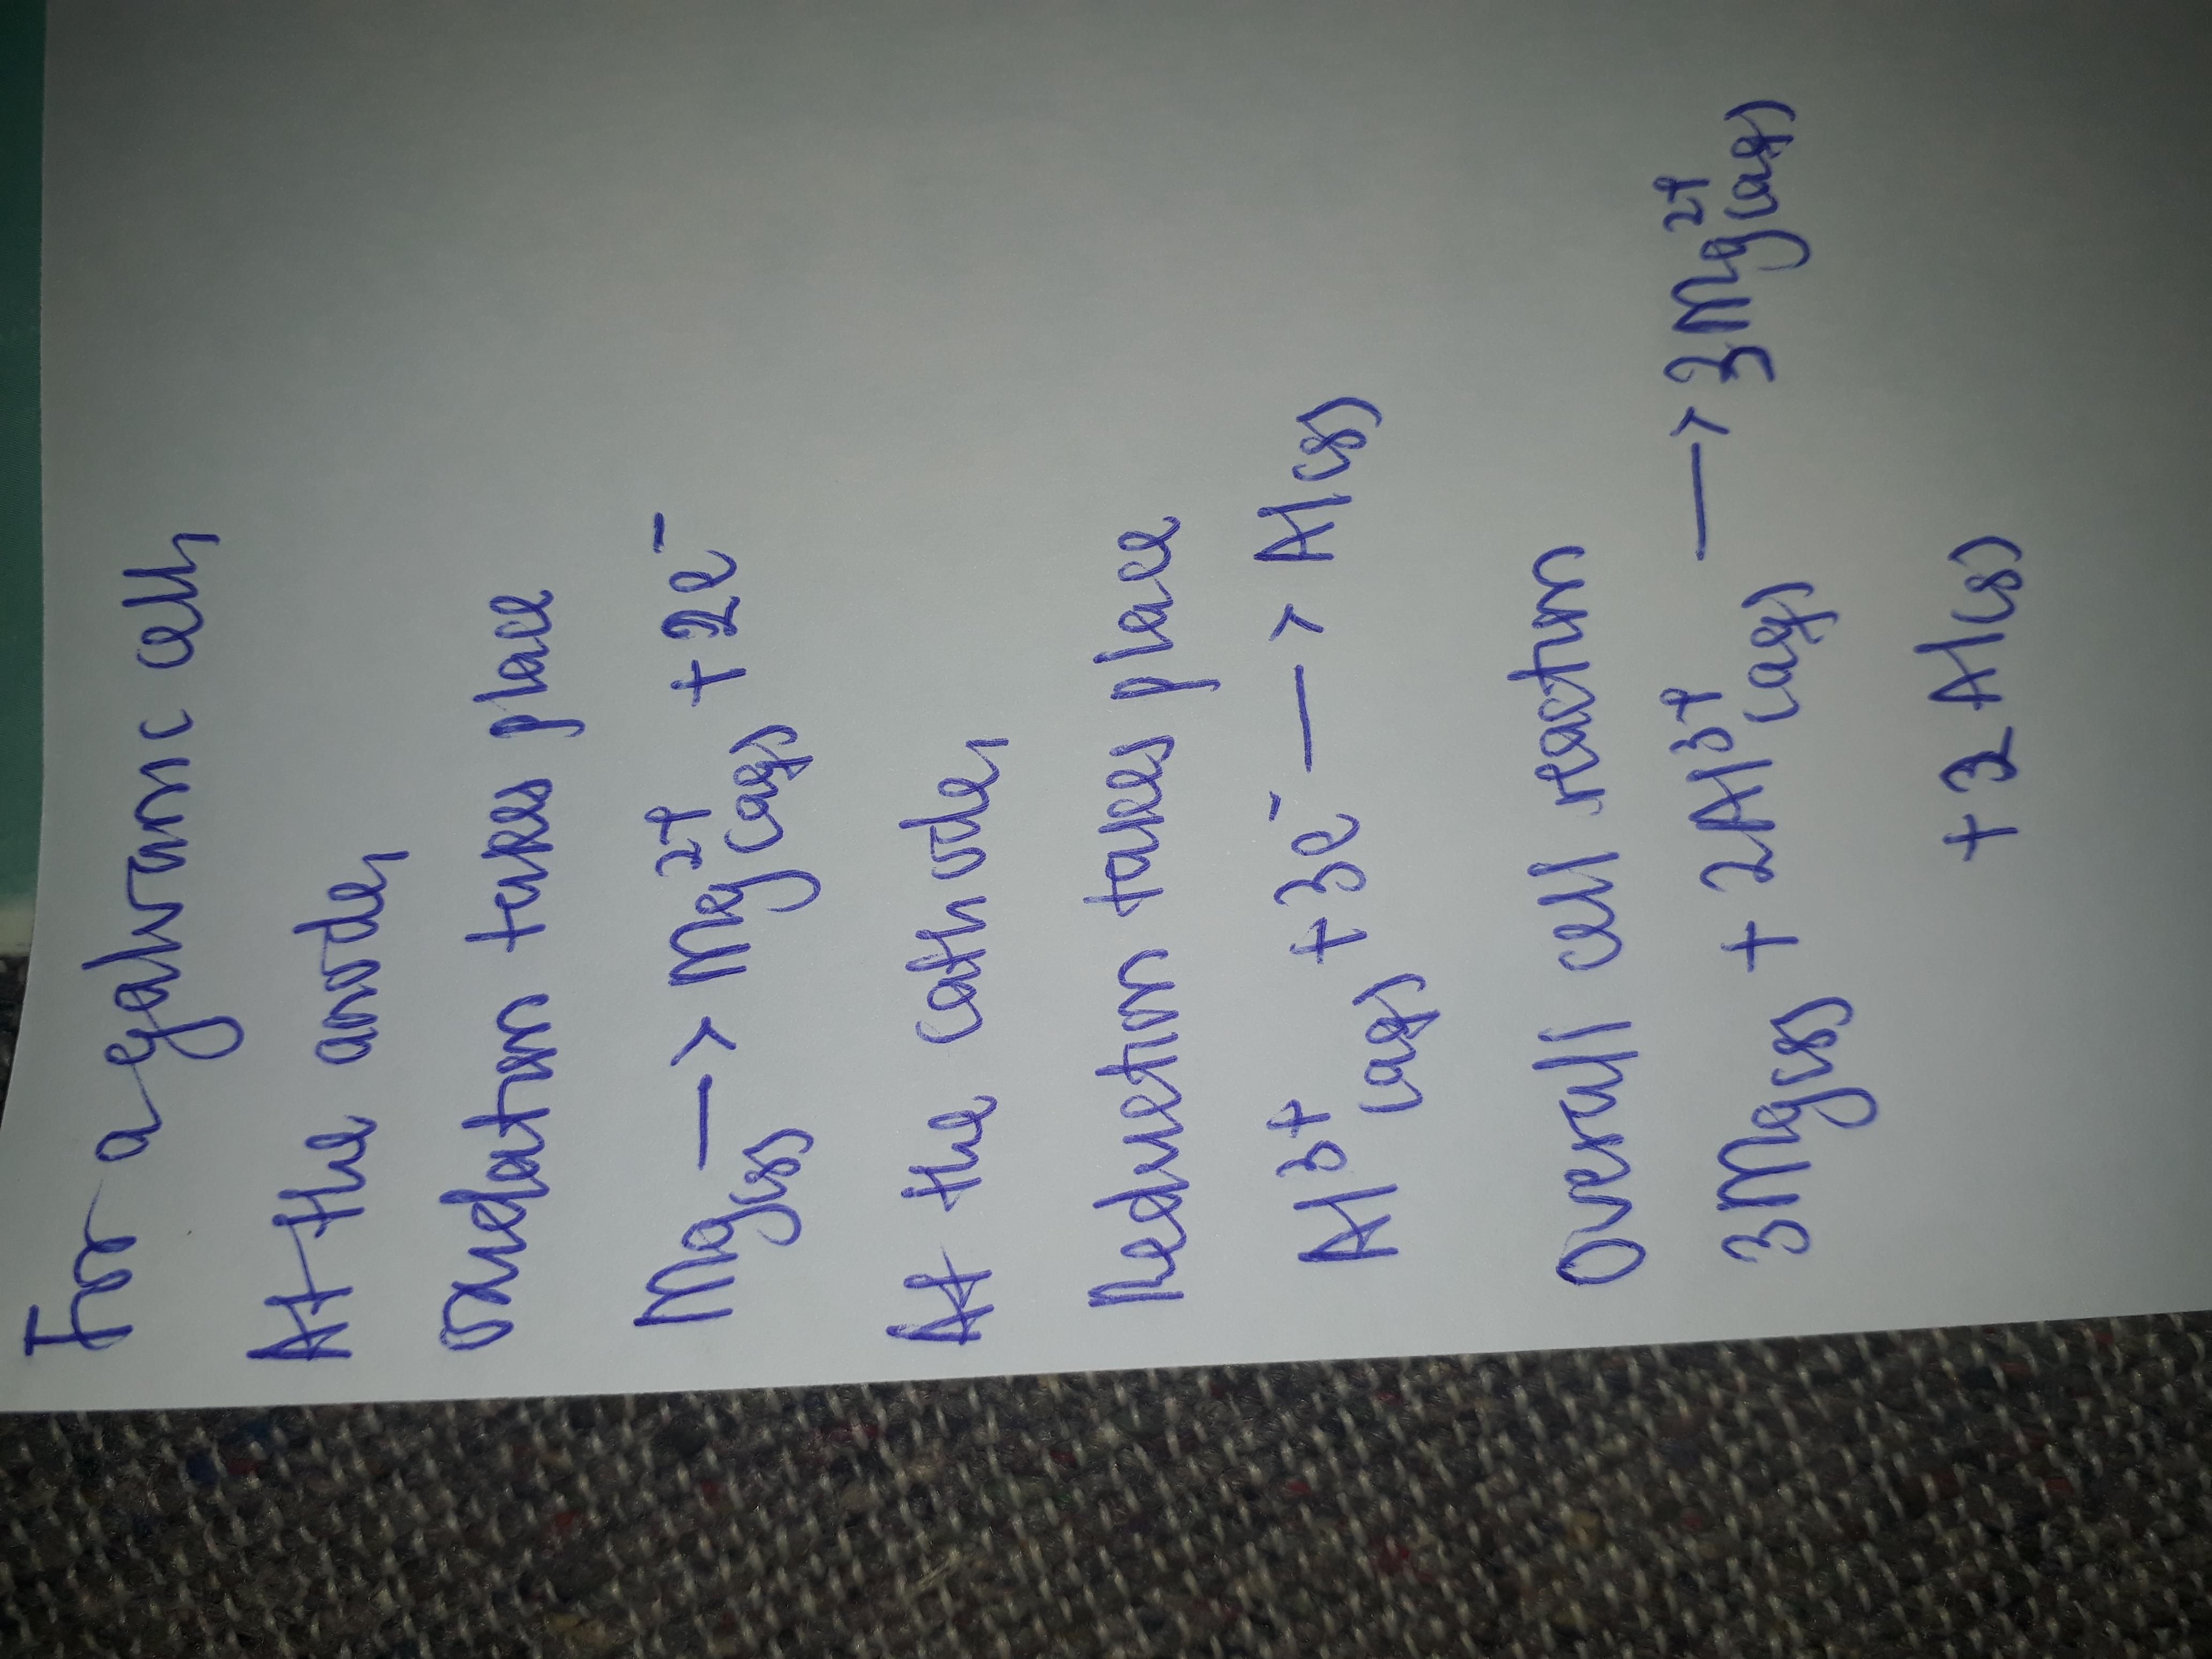 For a galvanic cell,
At the anode,
oxidation takes place
Mg(s) —> Mg²⁺(aq) + 2e⁻
At the cathode,
Reduction takes place
Al³⁺(aq) + 3e⁻ —> Al(s)
Overall cell reaction
3Mg(s) + 2Al³⁺(aq) —> 3Mg²⁺(aq)
+ 2Al(s)